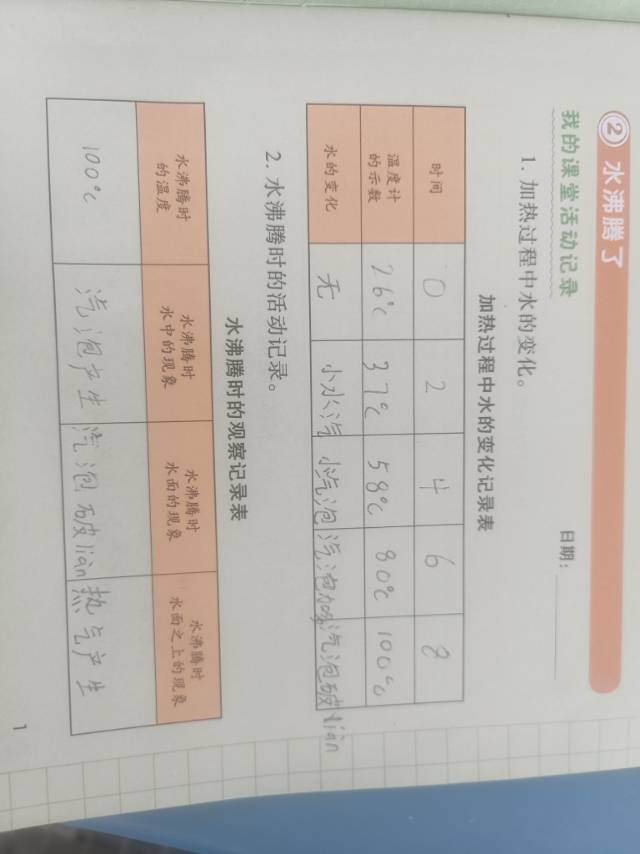 ② 水沸腾了
我的课堂活动记录 日期:
1. 加热过程中水的变化。
加热过程中水的变化记录表
时间 0 2 4 6 8
温度计的示数 26℃ 37℃ 58℃ 80℃ 100℃
水的变化 无 小水汽 小汽泡 汽泡加多 汽泡破liàn
2. 水沸腾时的活动记录。
水沸腾时的观察记录表
水沸腾时的温度 水沸腾时水中的现象 水沸腾时水面的现象 水沸腾时水面之上的现象
100℃ 汽泡产生 汽泡破liàn 热气产生
1